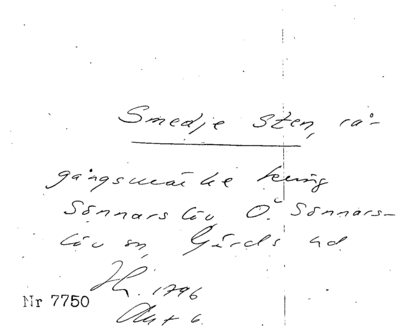 Smedje Sten, rå-
gångsmärke kring
Sönnarslöv Ö. Sönnars-
löv sn, Gärds hd
1796
Nr 7750
Akt 6